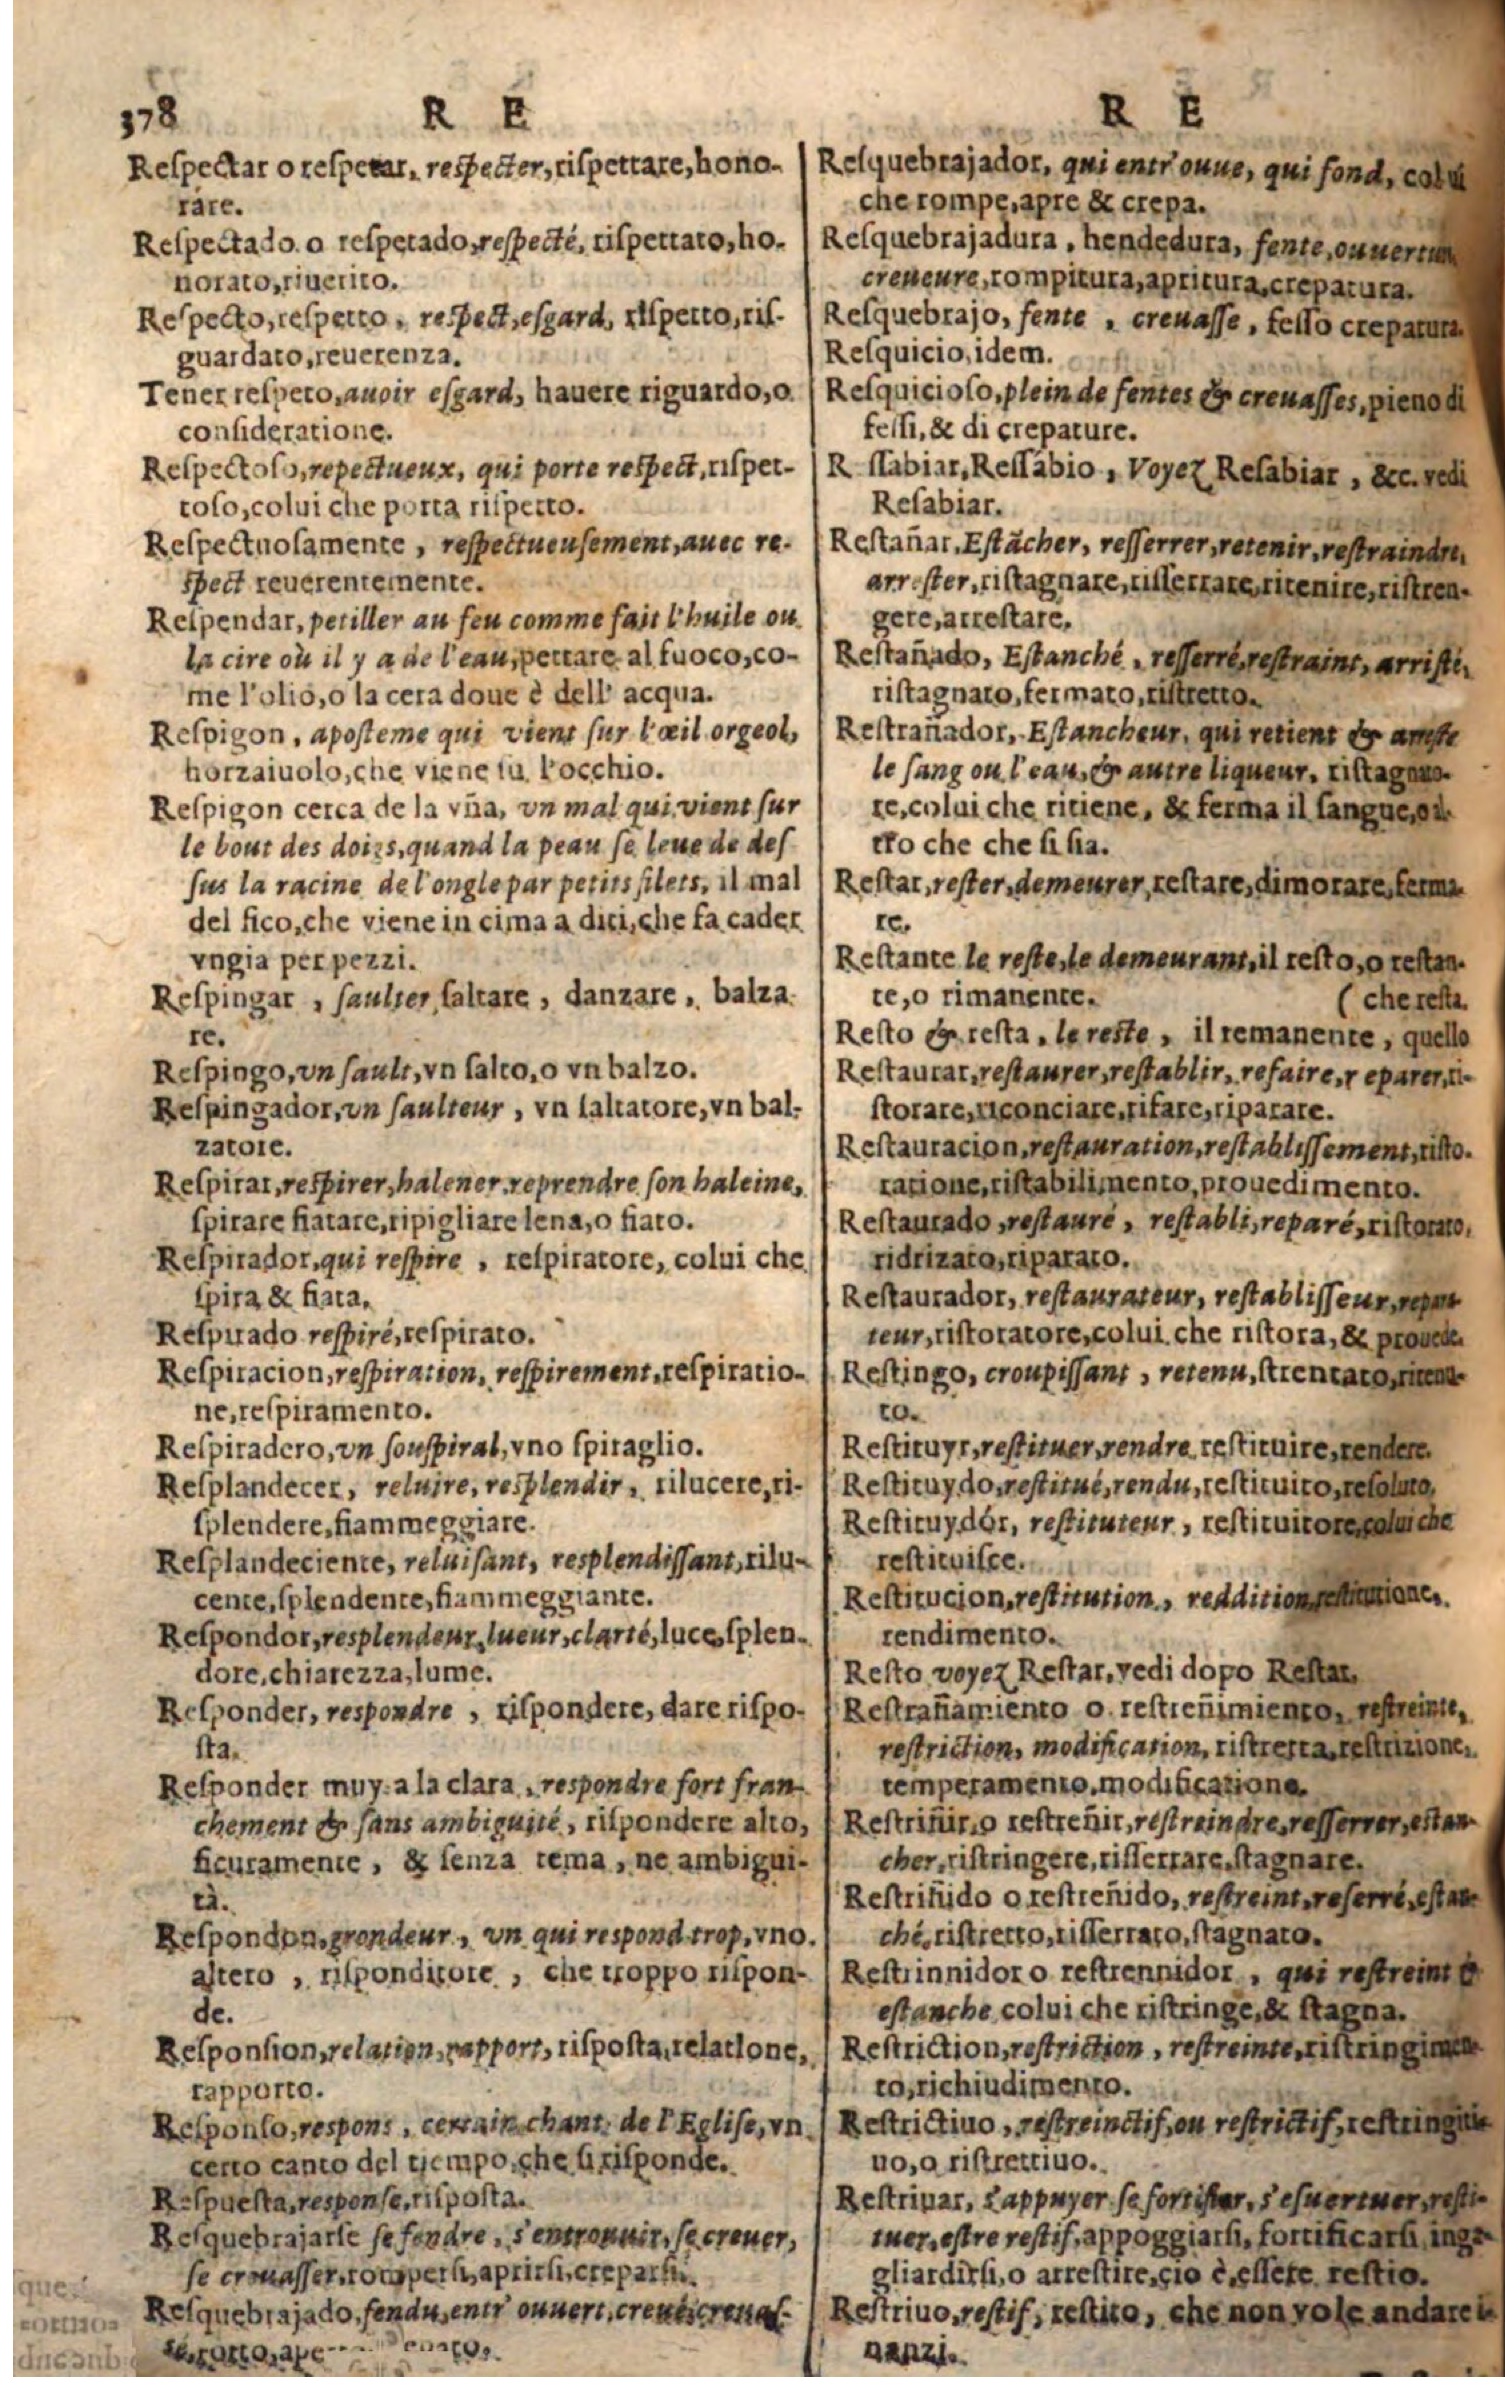 378 R E
Reſpectar o reſpetar, reſpecter, riſpettare, hono-
rare.
Reſpectado o reſpetado, reſpecté, riſpettato, ho-
norato, riuerito.
Reſpecto, reſpetto, reſpect, eſgard, riſpetto, riſ-
guardato, reuerenza.
Tener reſpeto, auoir eſgard, hauere riguardo, o
conſideratione.
Reſpectoſo, repectueux, qui porte reſpect, riſpet-
toſo, colui che porta riſpetto.
Reſpectuoſamente, reſpectueuſement, auec re-
ſpect reuerentemente.
Reſpendar, petiller au feu comme fait l'huile ou
la cire où il y a de l'eau, pettare al fuoco, co-
me l'olio, o la cera doue è dell' acqua.
Reſpigon, apoſteme qui vient ſur l'œil orgeol,
horzaiuolo, che viene ſu l'occhio.
Reſpigon cerca de la vña, vn mal qui vient ſur
le bout des doigs, quand la peau ſe leue de deſ
ſus la racine de l'ongle par petits filets, il mal
del fico, che viene in cima a diti, che fa cader
vngia per pezzi.
Reſpingar, ſaulter ſaltare, danzare, balza
re.
Reſpingo, vn ſault, vn ſalto, o vn balzo.
Reſpingador, vn ſaulteur, vn ſaltatore, vn bal-
zatore.
Reſpirar, reſpirer, halener, reprendre ſon haleine,
ſpirare fiatare, ripigliare lena, o fiato.
Reſpirador, qui reſpire, reſpiratore, colui che
ſpira & fiata.
Reſpirado reſpiré, reſpirato.
Reſpiracion, reſpiration, reſpirement, reſpiratio-
ne, reſpiramento.
Reſpiradero, vn ſouſpiral, vno ſpiraglio.
Reſplandecer, reluire, reſplendir, rilucere, ri-
ſplendere, fiammeggiare.
Reſplandeciente, reluiſant, reſplendiſſant, rilu-
cente, ſplendente, fiammeggiante.
Reſpondor, reſplendeur, lueur, clarté, luce, ſplen-
dore, chiarezza, lume.
Reſponder, reſpondre, riſpondere, dare riſpo-
ſta.
Reſponder muy a la clara, reſpondre fort fran-
chement & ſans ambiguité, riſpondere alto,
ſicuramente, & ſenza tema, ne ambigui-
tà.
Reſpondon, grondeur, vn qui reſpond trop, vno
altero, riſponditore, che troppo riſpon-
de.
Reſponſion, relation, rapport, riſpoſta, relatione,
rapporto.
Reſponſo, respons, certain chant de l'Egliſe, vn
certo canto del tiempo, che ſi riſponde.
Reſpueſta, response, riſpoſta.
Reſquebrajarſe ſe fendre, s'entrouuir, ſe creuer,
ſe creuaſſer, romperſi, aprirſi, creparſi.
Reſquebrajado, fendu, entr' ouuert, creué, creuaſ-
ſé, rotto,
R E
Reſquebrajador, qui entr'ouue, qui fond, colui
che rompe, apre & crepa.
Reſquebrajadura, hendedura, fente, ouuerture
creueure, rompitura, apritura, crepatura.
Reſquebrajo, fente, creuaſſe, feſſo crepatura.
Reſquicio, idem.
Reſquicioſo, plein de fentes & creuaſſes, pieno di
feſſi, & di crepature.
R ſſabiar, Reſſabio, Voyez Reſabiar, &c. vedi
Reſabiar.
Reſtañar, Eſtãcher, reſſerrer, retenir, reſtraindre,
arreſter, riſtagnare, riſſerrare, ritenire, riſtren-
gere, arreſtare.
Reſtañado, Eſtanché, reſſerré, reſtraint, arriſté,
riſtagnato, fermato, riſtretto.
Reſtrañador, Eſtancheur, qui retient & arreſte
le ſang ou l'eau, & autre liqueur, riſtagnato-
re, colui che ritiene, & ferma il ſangue, o al-
tro che che ſi ſia.
Reſtar, reſter, demeurer, reſtare, dimorare, ferma-
re.
Reſtante le reſte, le demeurant, il reſto, o reſtan-
te, o rimanente. ( che reſta.
Reſto & reſta, le reſte, il remanente, quello
Reſtaurar, reſtaurer, reſtablir, refaire, r eparer, ri-
ſtorare, riconciare, rifare, riparare.
Reſtauracion, reſtauration, reſtabliſſement, riſto-
ratione, riſtabilimento, prouedimento.
Reſtaurado, reſtauré, reſtabli, reparé, riſtorato,
ridrizato, riparato.
Reſtaurador, reſtaurateur, reſtabliſſeur, repara-
teur, riſtoratore, colui che riſtora, & prouede.
Reſtingo, croupiſſant, retenu, ſtrentato, ritenu-
to.
Reſtituyr, reſtituer, rendre reſtituire, rendere.
Reſtituydo, reſtitué, rendu, reſtituito, reſoluto.
Reſtituydór, reſtituteur, reſtituitore, colui che
reſtituiſce.
Reſtitucion, reſtitution, reddition, reſtitutione,
rendimento.
Reſto voyez Reſtar, vedi dopo Reſtar.
Reſtrañamiento o reſtreñimiento, reſtreinte,
reſtriction, modification, riſtretta, reſtrizione,
temperamento, modificatione.
Reſtriñir, o reſtreñir, reſtreindre, reſſerrer, eſtan-
cher, riſtringere, riſſerrare, ſtagnare.
Reſtriñido o reſtreñido, reſtreint, reſerré, eſtan-
ché, riſtretto, riſſerrato, ſtagnato.
Reſtrinnidor o reſtrennidor, qui reſtreint &
eſtanche colui che riſtringe, & ſtagna.
Reſtriction, reſtriction, reſtreinte, riſtringimen-
to, richiudimento.
Reſtrictiuo, reſtreinctif, ou reſtrictif, reſtringiti-
uo, o riſtrettiuo.
Reſtriuar, s'appuyer ſe fortifier, s'eſuertuer, reſti-
tuer, eſtre reſtif, appoggiarſi, fortificarſi, inga-
gliardirſi, o arreſtire, cio è, eſſere reſtio.
Reſtriuo, reſtif, reſtito, che non vole andare i-
nanzi.